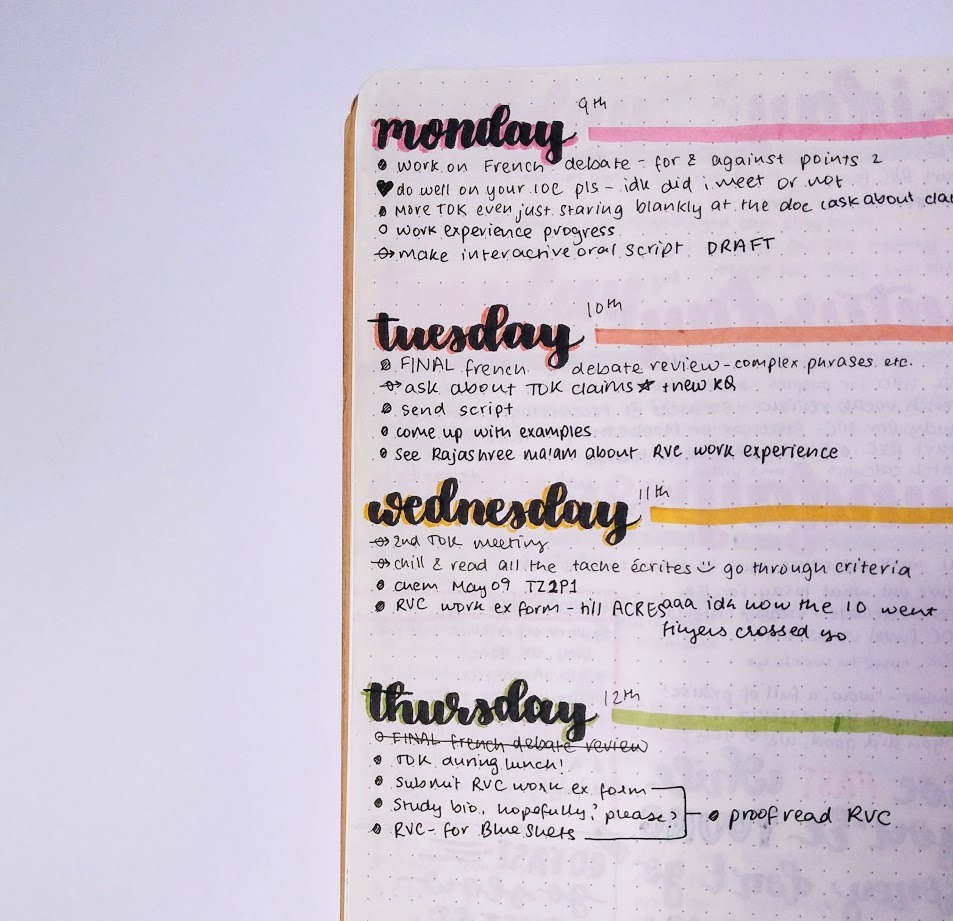 9th
monday
work on French debate - for & against points 2
do well on your IOC pls - idk did i meet or not
More TOK even just staring blankly at the doc (ask about clai
work experience progress
make interactive oral script DRAFT
10th
tuesday
FINAL french debate review - complex phrases etc.
ask about TOK claims ★ + new KQ
send script
come up with examples
see Rajashree ma'am about RVC work experience
11th
wednesday
2nd TOK meeting
chill & read all the tache écrites go through criteria
chem May 09 TZ2P1
RVC work ex form - till ACRES aaa idk how the IO went
fingers crossed yo
12th
thursday
FINAL french debate review
TOK during lunch!
submit RVC work ex form
study bio, hopefully? please?
proofread RVC
RVC - for Blue